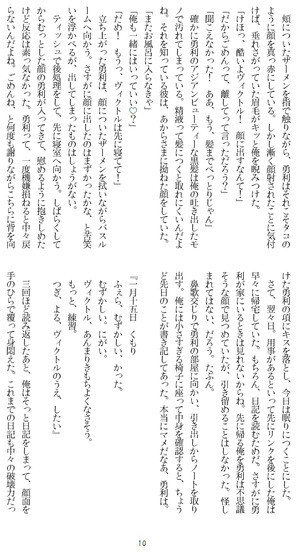 頬についたザーメンを指で触りながら、勇利はそれこそタコ
のように顔を真っ赤にしている。しかし漸く顔射されたことに気付
けば、垂れさがっていた眉毛がキッと俺を睨みつけた。
「けほっ、酷いよヴィクトル！ 顔に出すなんて！」
「だからごめんって、離してって言っただろう？」
「聞こえなかった！ ああ、もう。髪までべっとりじゃん」
確かに勇利のアジアンビューティーな黒髪は俺の吐き出したモ
ノで汚れてしまっている。精液って髪につくと取れにくいんだよ
ね。それを知っている彼は、あからさまに拗ねた顔をしていた。
「またお風呂に入らなきゃ」
「俺も一緒にはいっていい♡？」
「だめ！ もうっ、ヴィクトルは先に寝てて！」
立ち上がった勇利は、顔についたザーメンを拭いながらバスル
ームへ向かう。さすがに顔に出したのはまずかったかな、と苦笑
いを浮べるが、出してしまったものはしょうがない。
ティッシュで後処理をして、先に寝室へ向かう。しばらくして
からむすっとした顔の勇利が入ってきて、慰めるように抱きしめた
けど反応は返ってこなかった。勇利って、一度機嫌損ねると中々戻
らないんだよね。ごめんね、と何度も謝りながらこちらに背を向
けた勇利の項にキスを落とし、今日は眠りにつくことにした。
さて、翌日。用事があるといって先にリンクを後にした俺は
早々に帰宅していた。もちろん、日記を読むためだ。さすがに勇
利が家にいるときは見れないからね。先に帰る俺を勇利は不思議
そうな顔で見つめてたが、引き留めることはしなかった。怪し
まれてはない。だろう。たぶん。
鼻歌交じりで勇利の部屋に向かい、引き出しからノートを取り
出す。俺には小さすぎる椅子に座って中身を確認すると、ちょう
ど先日のことが書き記してあった。本当にマメだなあ、勇利は。
『一月十五日 くもり
ふぇら、むずかしい、かった。
むずかしい。にがい。
ヴィクトル、あんまりきもちよくなさそう。
もっと、練習。
つぎ、よる、ヴィクトルのうえ、したい』
三回ほど読み返したあと、俺はそっと日記をしまって、顔面を
手のひらで覆って身悶えた。これまでの日記も中々の破壊力だっ
10